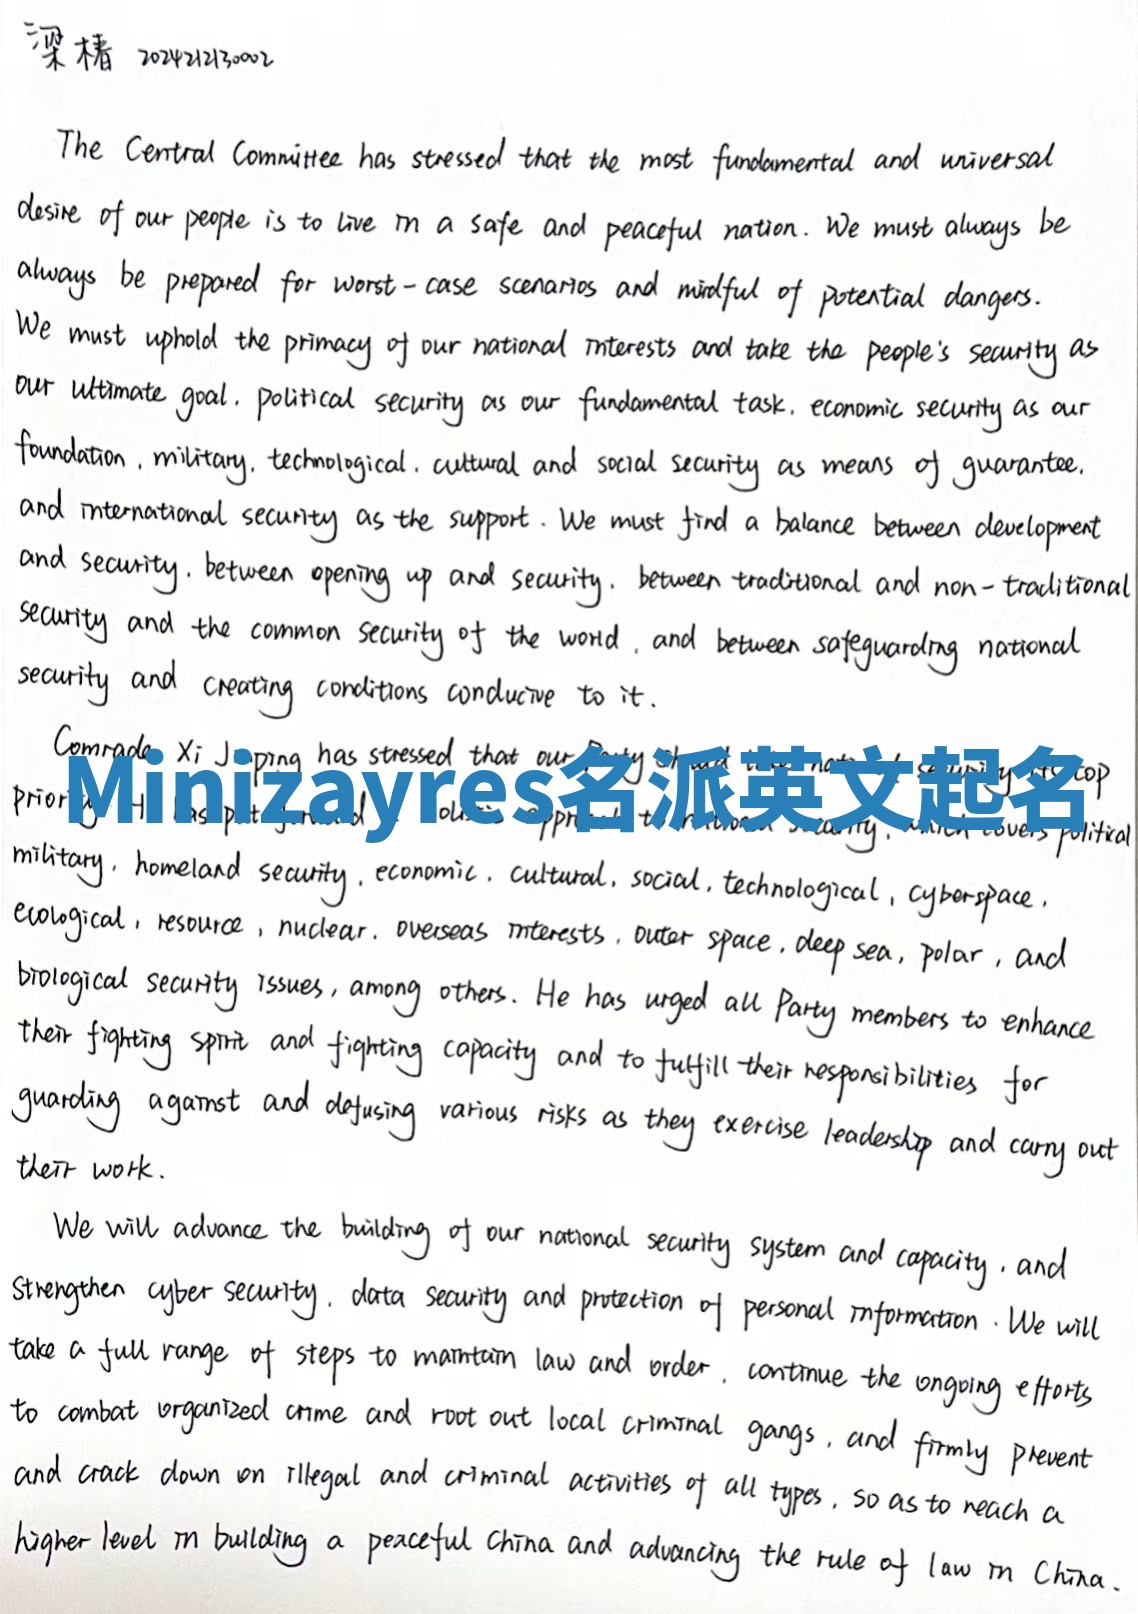 梁椿 2024212130002
The Central Committee has stressed that the most fundamental and universal
desire of our people is to live in a safe and peaceful nation. We must always be
always be prepared for worst-case scenarios and mindful of potential dangers.
We must uphold the primacy of our national interests and take the people's security as
our ultimate goal, political security as our fundamental task, economic security as our
foundation, military, technological, cultural and social security as means of guarantee,
and international security as the support. We must find a balance between development
and security, between opening up and security, between traditional and non-traditional
security and the common security of the world, and between safeguarding national
security and creating conditions conducive to it.
Comrade Xi Jinping has stressed that our Party should security its top
Minizayres名派英文起名
priority has put forward to national security, which covers political
military, homeland security, economic, cultural, social, technological, cyberspace,
ecological, resource, nuclear, overseas interests, outer space, deep sea, polar, and
biological security issues, among others. He has urged all Party members to enhance
their fighting spirit and fighting capacity and to fulfill their responsibilities for
guarding against and defusing various risks as they exercise leadership and carry out
their work.
We will advance the building of our national security system and capacity, and
strengthen cyber security, data security and protection of personal information. We will
take a full range of steps to maintain law and order, continue the ongoing efforts
to combat organized crime and root out local criminal gangs, and firmly prevent
and crack down on illegal and criminal activities of all types, so as to reach a
higher level in building a peaceful China and advancing the rule of law in China.